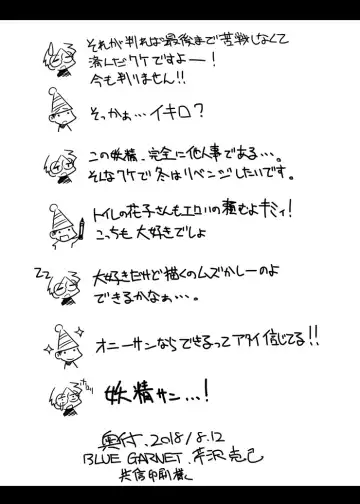 それが判れば最後まで苦戦しなくて
済んだワケですよー!
今も判りません!!
そっかぁ…イキロ?
この妖精、完全に他人事である…。
そんなワケで冬はリベンジしたいです。
トイレの花子さんもエロいの積むよキミィ!
こっちも大好きでしょ
ZZ
大好きだけど描くのムズかしーのよ
できるかなぁ…。
オニーサンならできるってアタイ信じてる!!
ポロリ
妖精サン…!
奥付. 2018/8.12
BLUE GARNET. 芹沢克己
共信印刷様